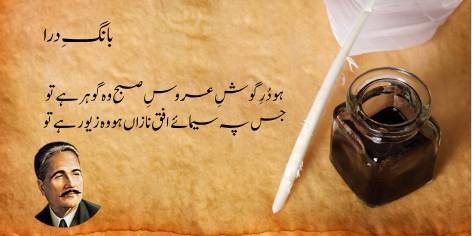 بانگِ درا
ہو دُرِ گوشِ عروسِ صبح وہ گوہر ہے تو
جس پہ سیمائے افق نازاں ہو وہ زیور ہے تو